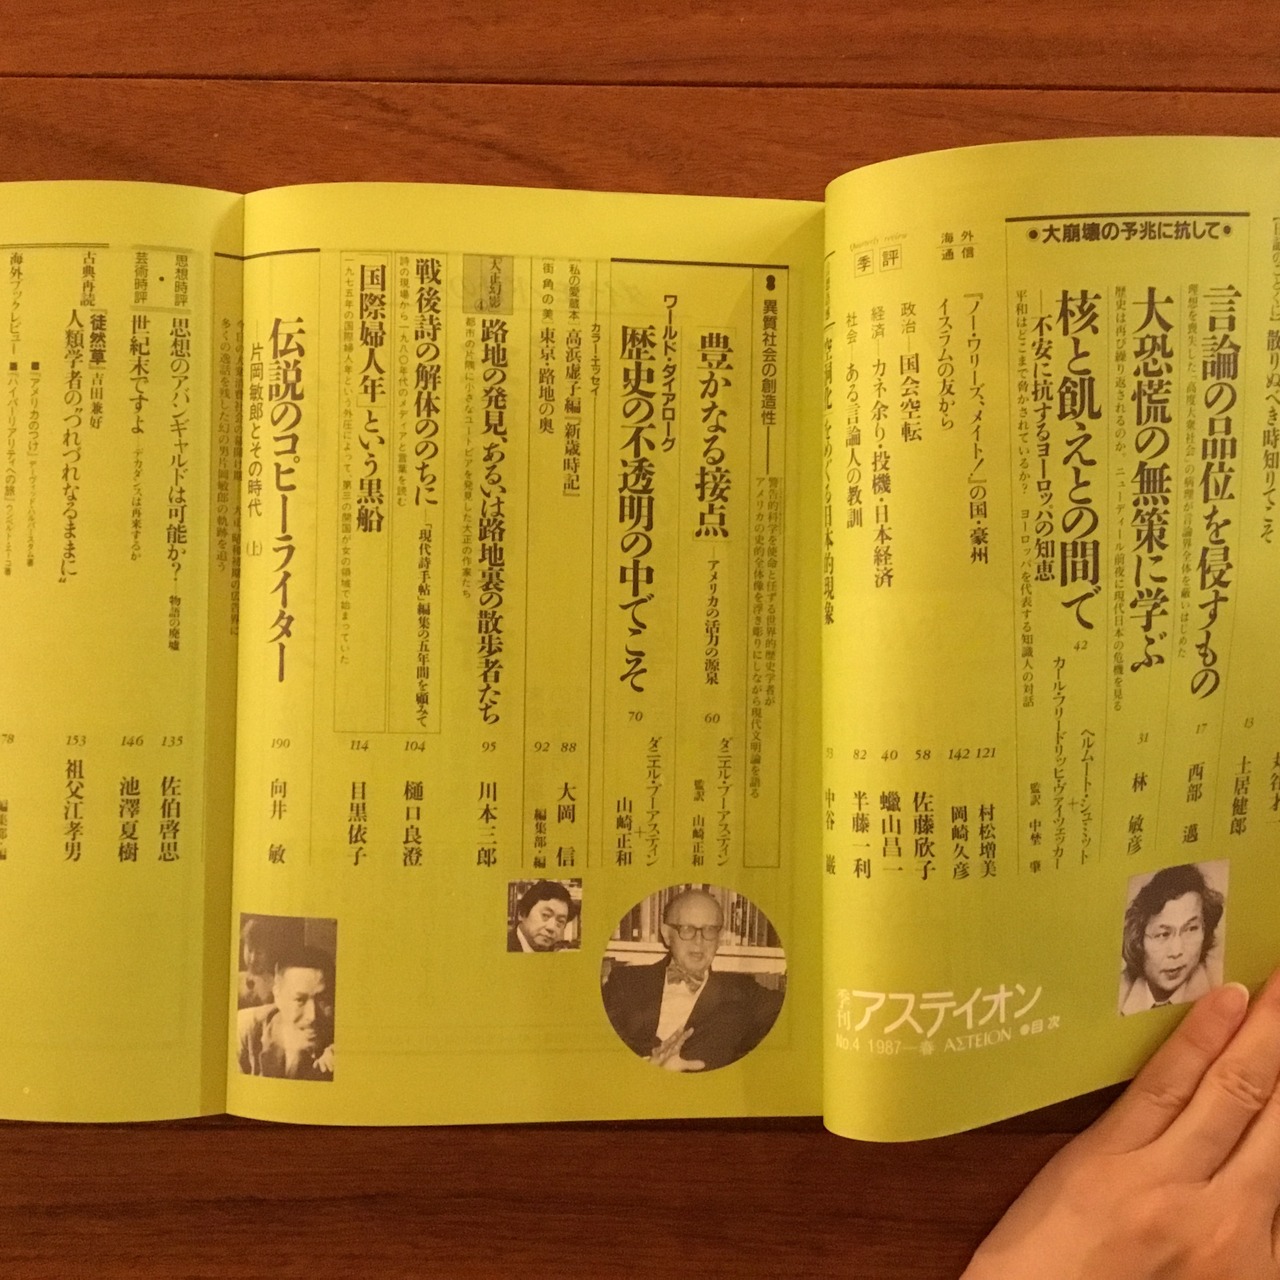 散りぬべき時知りてこそ
13
土居健郎
●大崩壊の予兆に抗して●
言論の品位を侵すもの
理想を喪失した「高度大衆社会」の病理が言論界全体を蔽いはじめた
17
西部 邁
大恐慌の無策に学ぶ
歴史は再び繰り返されるのか。ニューディール前夜に現代日本の危機を見る
31
林 敏彦
核と飢えとの間で
―不安に抗するヨーロッパの知恵
平和はどこまで脅かされているか? ヨーロッパを代表する知識人の対話
42
ヘルムート・シュミット
+
カール・フリードリッヒ・ヴァイツェッカー
監訳 中埜 肇
海外通信
『ノー・ワリーズ、メイト!』の国・豪州
121
村松増美
イスラムの友から
142
岡崎久彦
Quarterly review
季評
政治―国会空転
58
佐藤欣子
経済―カネ余り・投機・日本経済
40
蠟山昌一
社会―ある言論人の教訓
82
半藤一利
をめぐる日本的現象
73
中谷 巌
季刊アステイオン
No.4 1987―春 ΑΣΤΕΙΟΝ ●目次
8 異質社会の創造性―
警告的科学を使命と任ずる世界的歴史学者が
アメリカの史的全体像を浮き彫りにしながら現代文明論を語る
豊かなる接点
―アメリカの活力の源泉
60
ダニエル・ブーアスティン
監訳 山崎正和
ワールド・ダイアローグ
歴史の不透明の中でこそ
70
ダニエル・ブーアスティン
+
山崎正和
カラー・エッセイ
[私の愛蔵本] 高浜虚子編『新歳時記』
88
大岡 信
[街角の美] 東京・路地の奥
92
編集部・編
大正幻影④
路地の発見、あるいは路地裏の散歩者たち
都市の片隅に小さなユートピアを発見した大正の作家たち
95
川本三郎
戦後詩の解体ののちに
『現代詩手帖』編集の五年間を顧みて
詩の現場から一九八〇年代のメディアと言葉を読む
104
樋口良澄
「国際婦人年」という黒船
一九七五年の国際婦人年という外圧によって、第三の開国が女の領域で始まっていた
114
目黒依子
伝説のコピーライター
―片岡敏郎とその時代(上)
多くの逸話を残した幻の男片岡敏郎の軌跡を追う
190
向井 敏
思想時評
・
芸術時評
思想のアバンギャルドは可能か?
物語の廃墟
135
佐伯啓思
世紀末ですよ
デカダンスは再来するか
146
池澤夏樹
古典再読
『徒然草』吉田兼好
人類学者の“つれづれなるままに”
153
祖父江孝男
海外ブックレビュー
■『アメリカのつけ』デーヴィッド・ハルバースタム著
■『ハイパーリアリティへの旅』ウンベルト・エーコ著
78
編集部・編